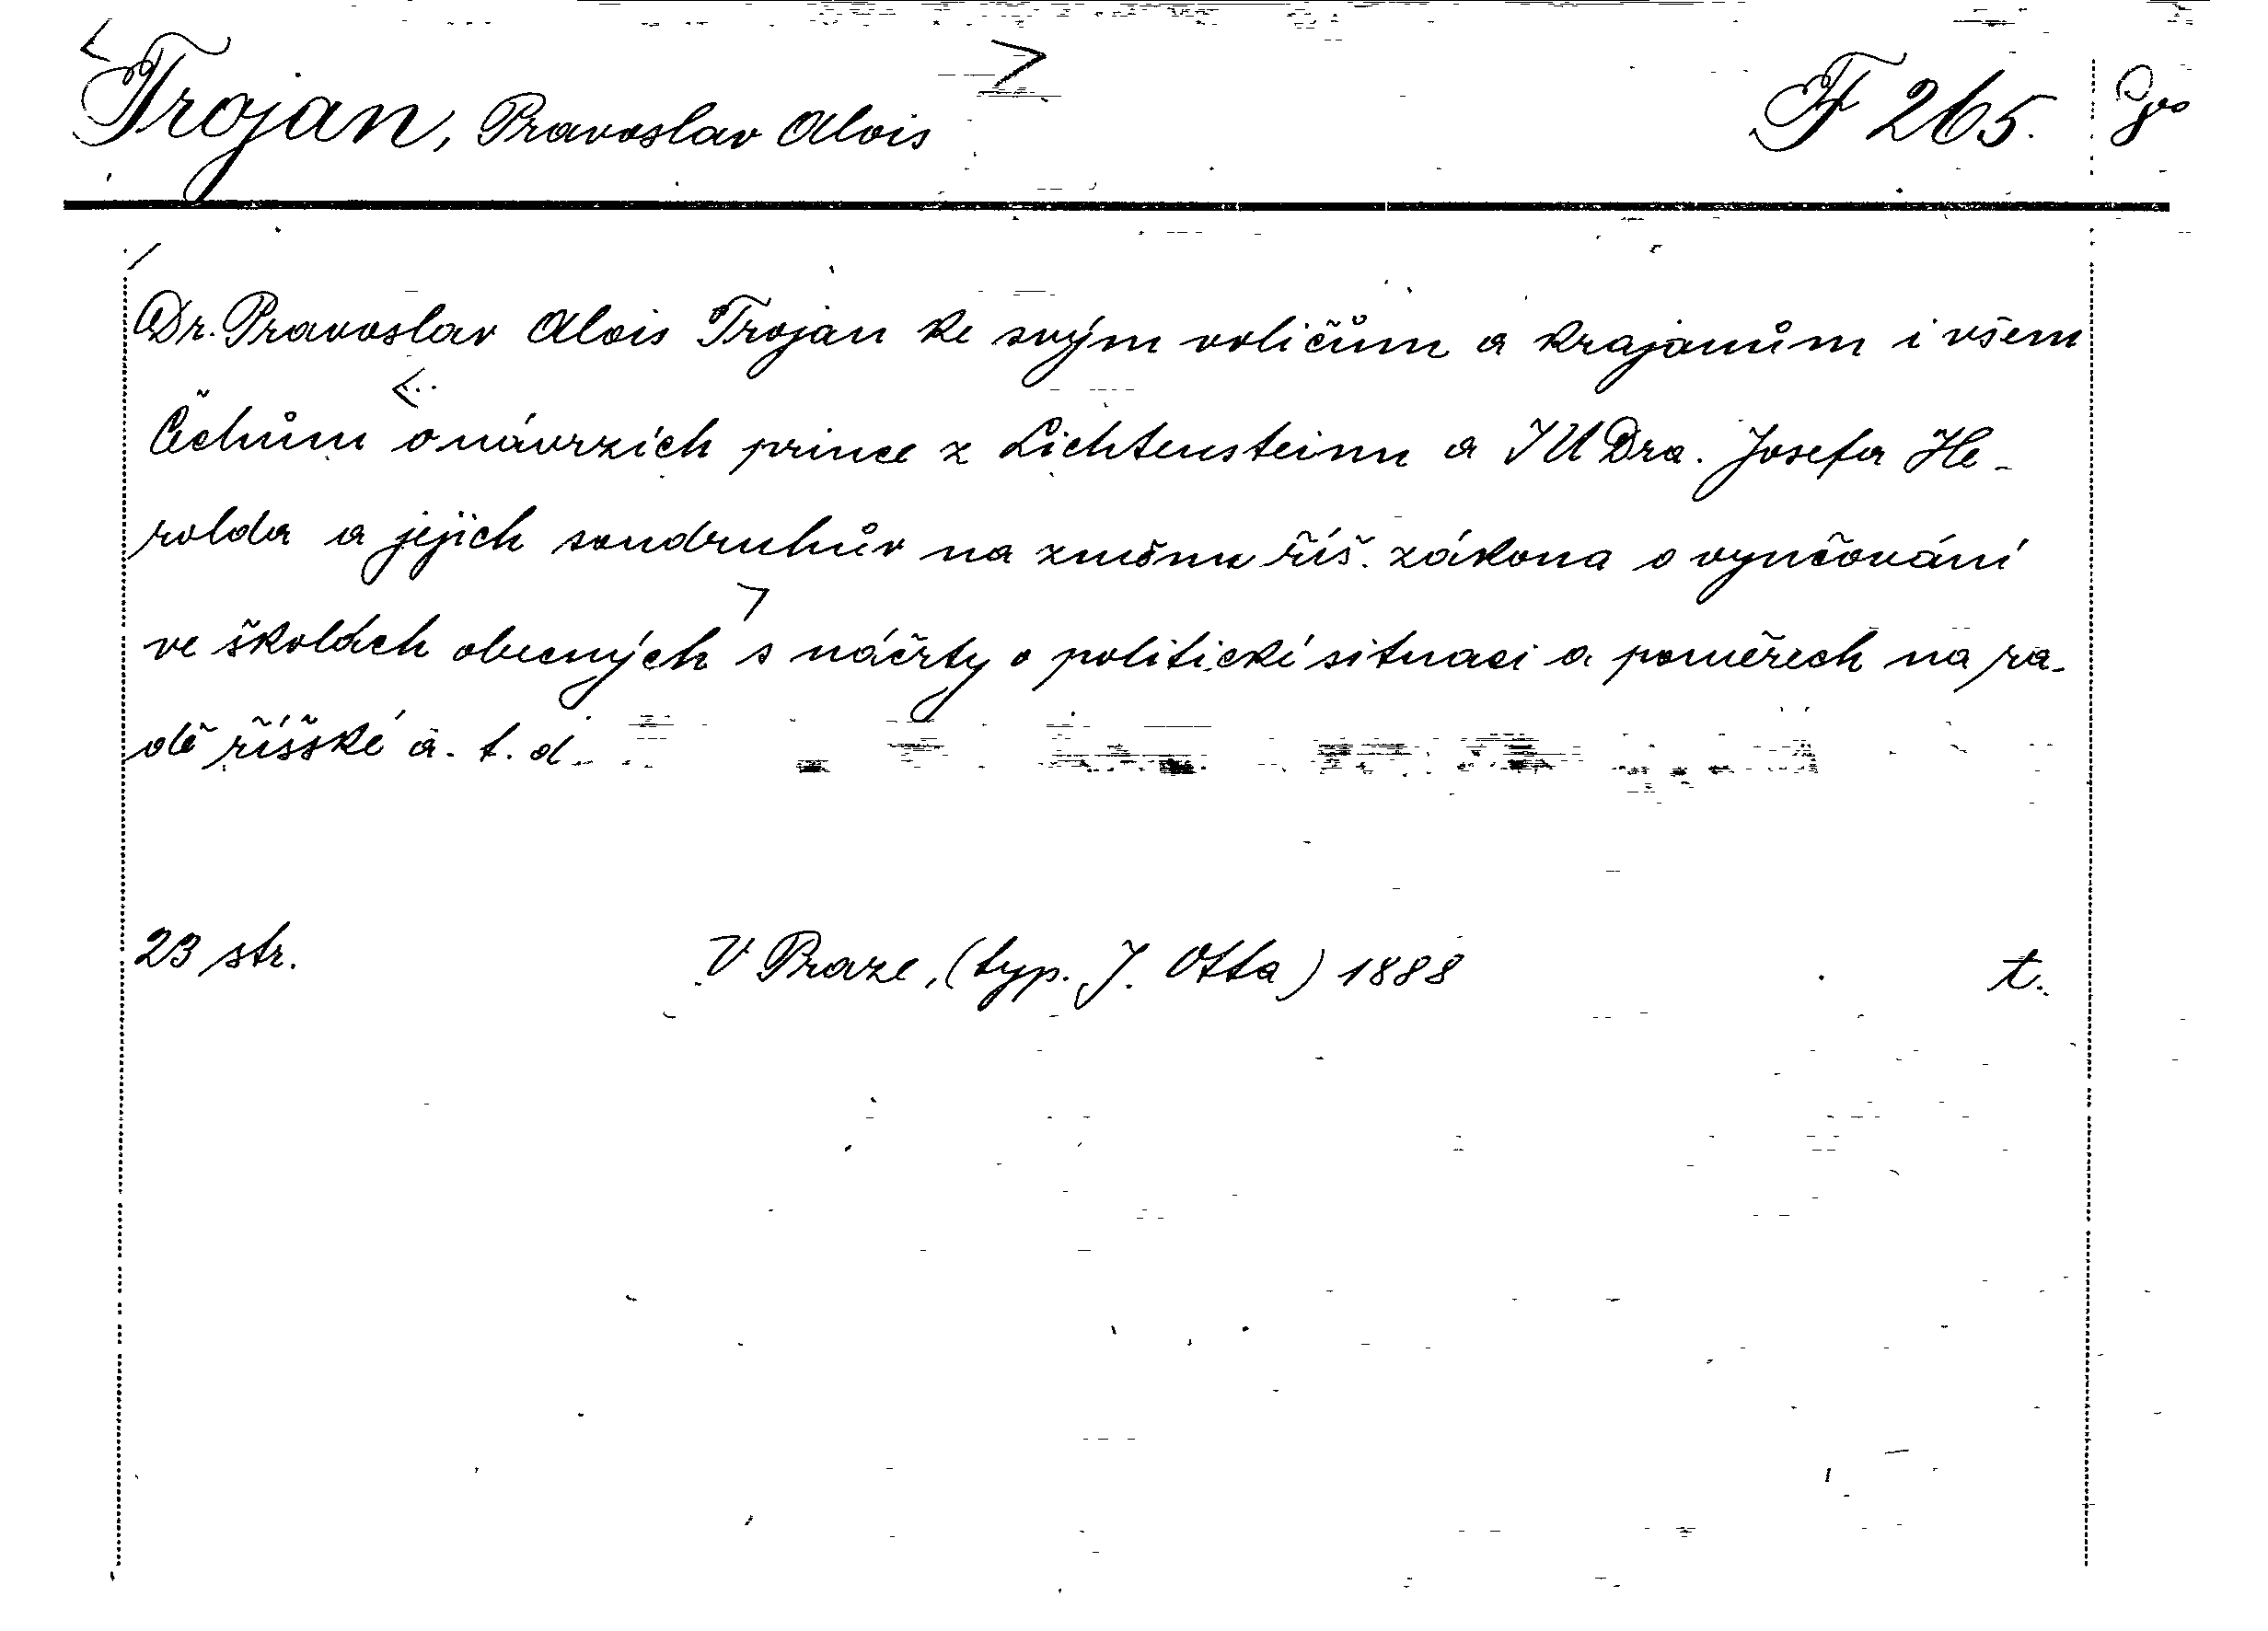 Trojan, Pravoslav Alois F 265. 8°
Dr. Pravoslav Alois Trojan ke svým voličům a krajanům i všem
Čechům o návrzích prince z Lichtensteinu a JUDra. Josefa He-
rolda a jejich soudruhův na změnu říš. zákona o vyučování
ve školách obecných s náčrty o politické situaci a poměrech na ra-
dě říšské a. t. d.
23 str. V Praze, (typ. J. Otta) 1888 t.